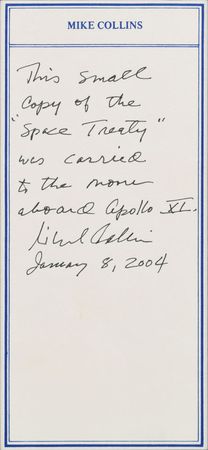 MIKE COLLINS
This small
copy of the
"Space Treaty"
was carried
to the moon
aboard Apollo XI.
Michael Collins
January 8, 2004